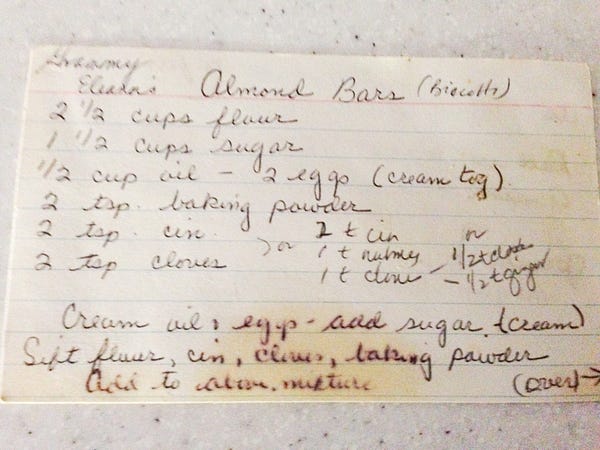 Grammy
Eleanor's Almond Bars (Biscotti)
2 1/2 cups flour
1 1/2 cups sugar
1/2 cup oil - 2 eggs (cream tog)
2 tsp. baking powder
2 tsp. cin. > or 2 t cin or
2 tsp cloves 1 t nutmeg - 1/2 t clove
1 t clove - 1/2 t ginger
Cream oil & eggs - add sugar (cream)
Sift flour, cin, cloves, baking powder
Add to above mixture (over) →